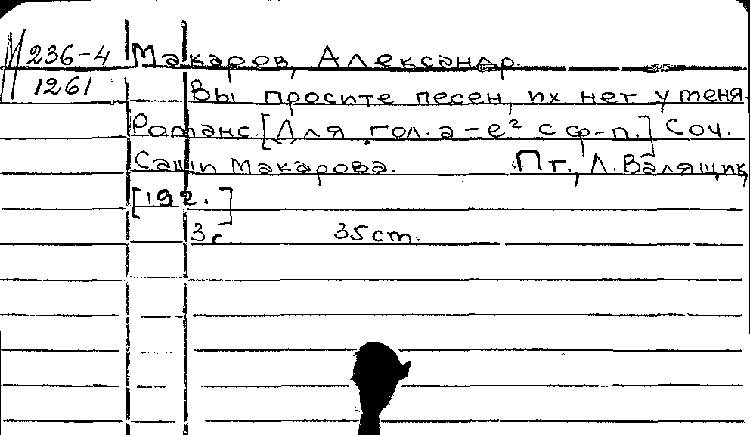 М 236-4 Макаров, Александр.
1261 Вы просите песен, их нет у меня.
Романс. [Для гол. a-e² с ф-п.] Соч.
Саши Макарова. Пг., Л. Валящик,
[192.]
3 с. 35 cm.